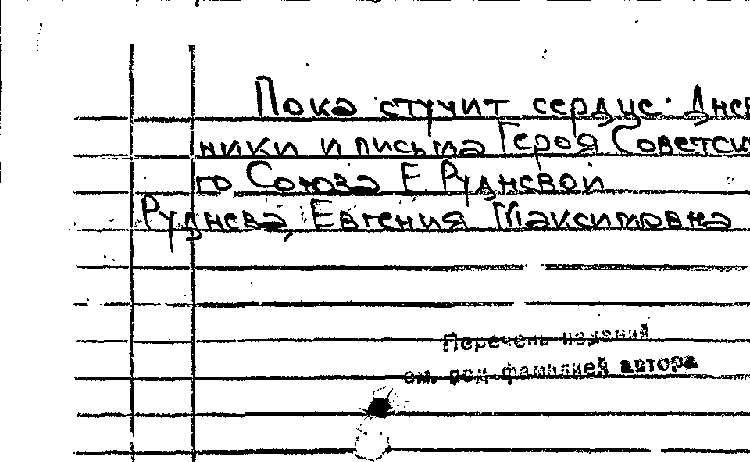 Пока стучит сердце. Днев
ники и письма Героя Советско
го Союза Е. Рудневой
Руднева, Евгения Максимовна
Перечень изданий
см. под фамилией автора